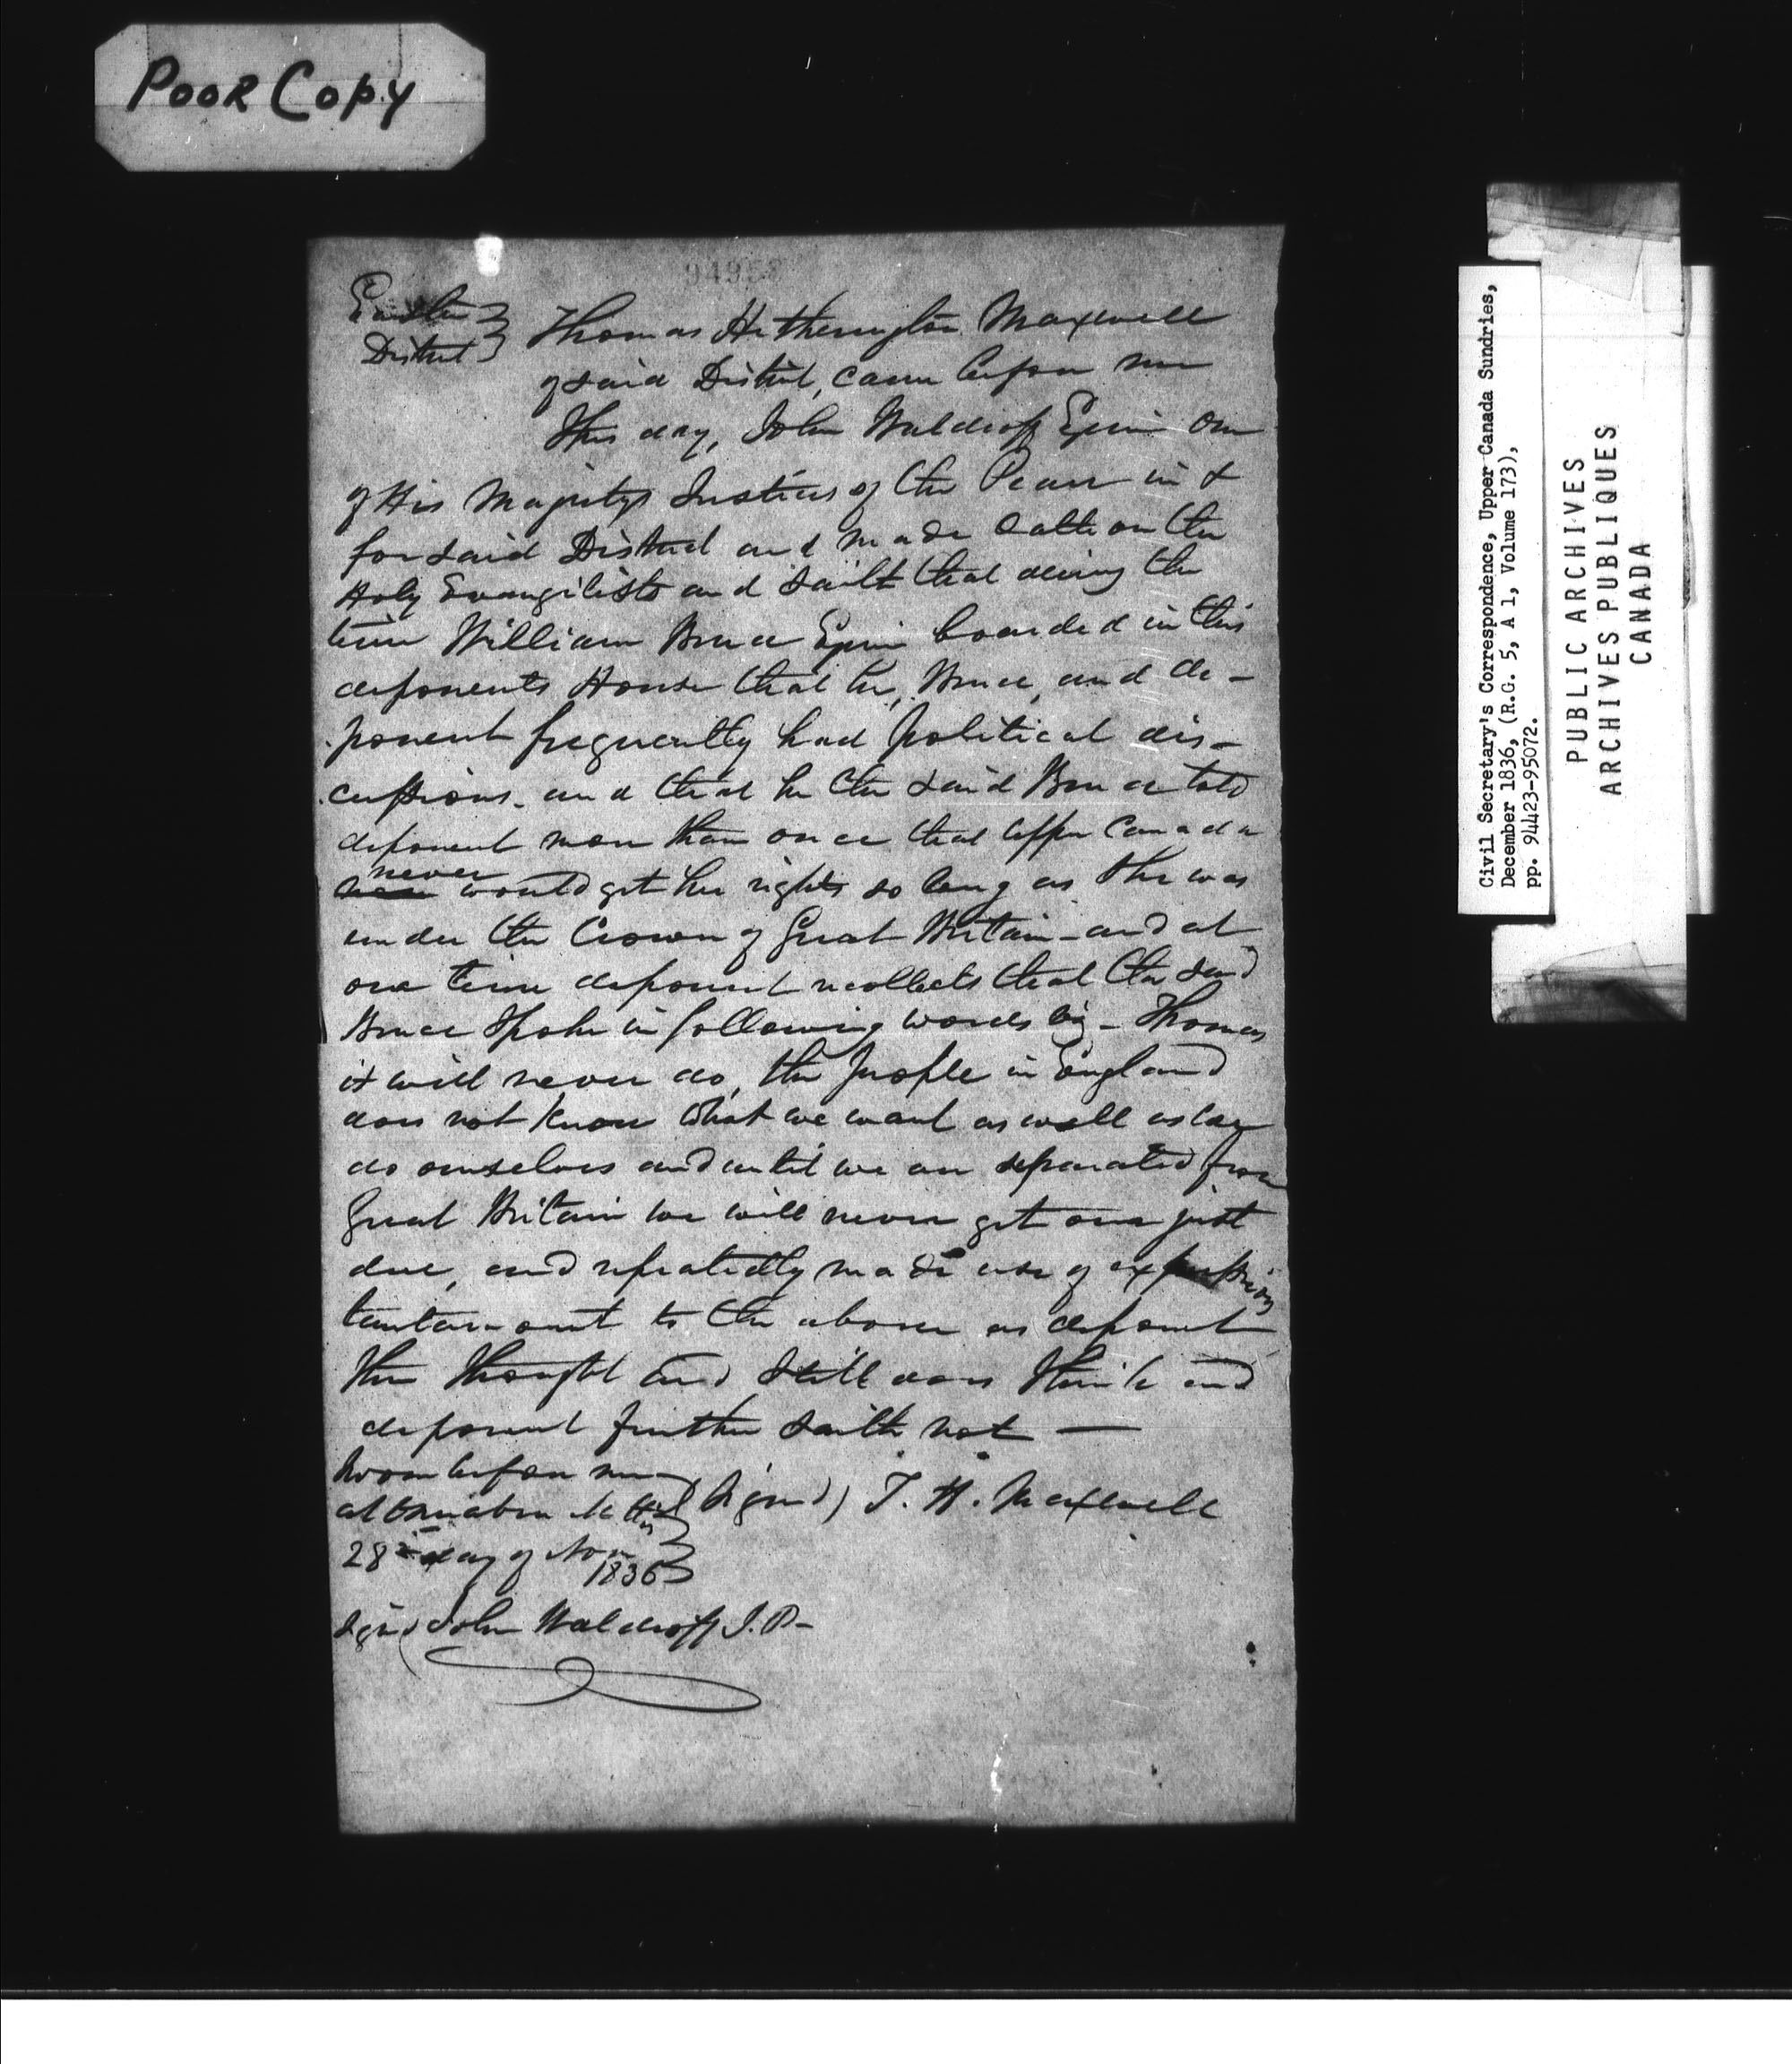 Poor Copy
Eastern District
Thomas Hetherington Maxwell
of said District, came before me
this day, John Waldroff Esquire one
of His Majestys Justices of the Peace in &
for said District and made Oath on the
Holy Evangilists and saith that during the
time William Bruce Esquire boarded in this
deponents House that he, Bruce, and de-
ponent frequently had political dis-
cussions. and that he the said Bruce told
deponent more than once that Upper Canada
never would get her rights so long as she was
under the Crown of Great Britain - and at
one time deponent recollects that the said
Bruce spoke in following words viz - Thomas
it will never do, the people in England
does not know what we want as well as we
do ourselves and until we are separated from
Great Britain we will never get our just
due, and repeatedly made use of expressions
tantamount to the above as deponent
then thought and still does think and
deponent further saith not —
Sworn before me
at this
28th day of Nov
1836
(Signed) T. H. Maxwell
Signed John Waldroff J.P.
Civil Secretary's Correspondence, Upper Canada Sundries,
December 1836, (R.G. 5, A 1, Volume 173),
pp. 94423-95072.
PUBLIC ARCHIVES
ARCHIVES PUBLIQUES
CANADA